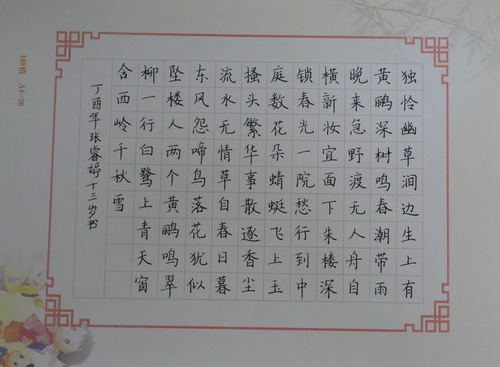 独怜幽草涧边生上有
黄鹂深树鸣春潮带雨
晚来急野渡无人舟自
横新妆宜面下朱楼深
锁春光一院愁行到中
庭数花朵蜻蜓飞上玉
搔头繁华事散逐香尘
流水无情草自春日暮
东风怨啼鸟落花犹似
坠楼人两个黄鹂鸣翠
柳一行白鹭上青天窗
含西岭千秋雪
丁酉年张睿婷十三岁书
108格 A4-36